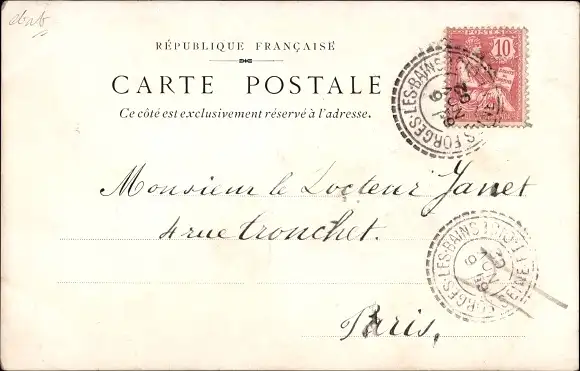 RÉPUBLIQUE FRANÇAISE
CARTE POSTALE
Ce côté est exclusivement réservé à l'adresse.
POSTES
10
FORGES-LES-BAINS
Monsieur le Docteur Janet
4 rue Tronchet.
FORGES-LES-BAINS
SEINE
Paris,